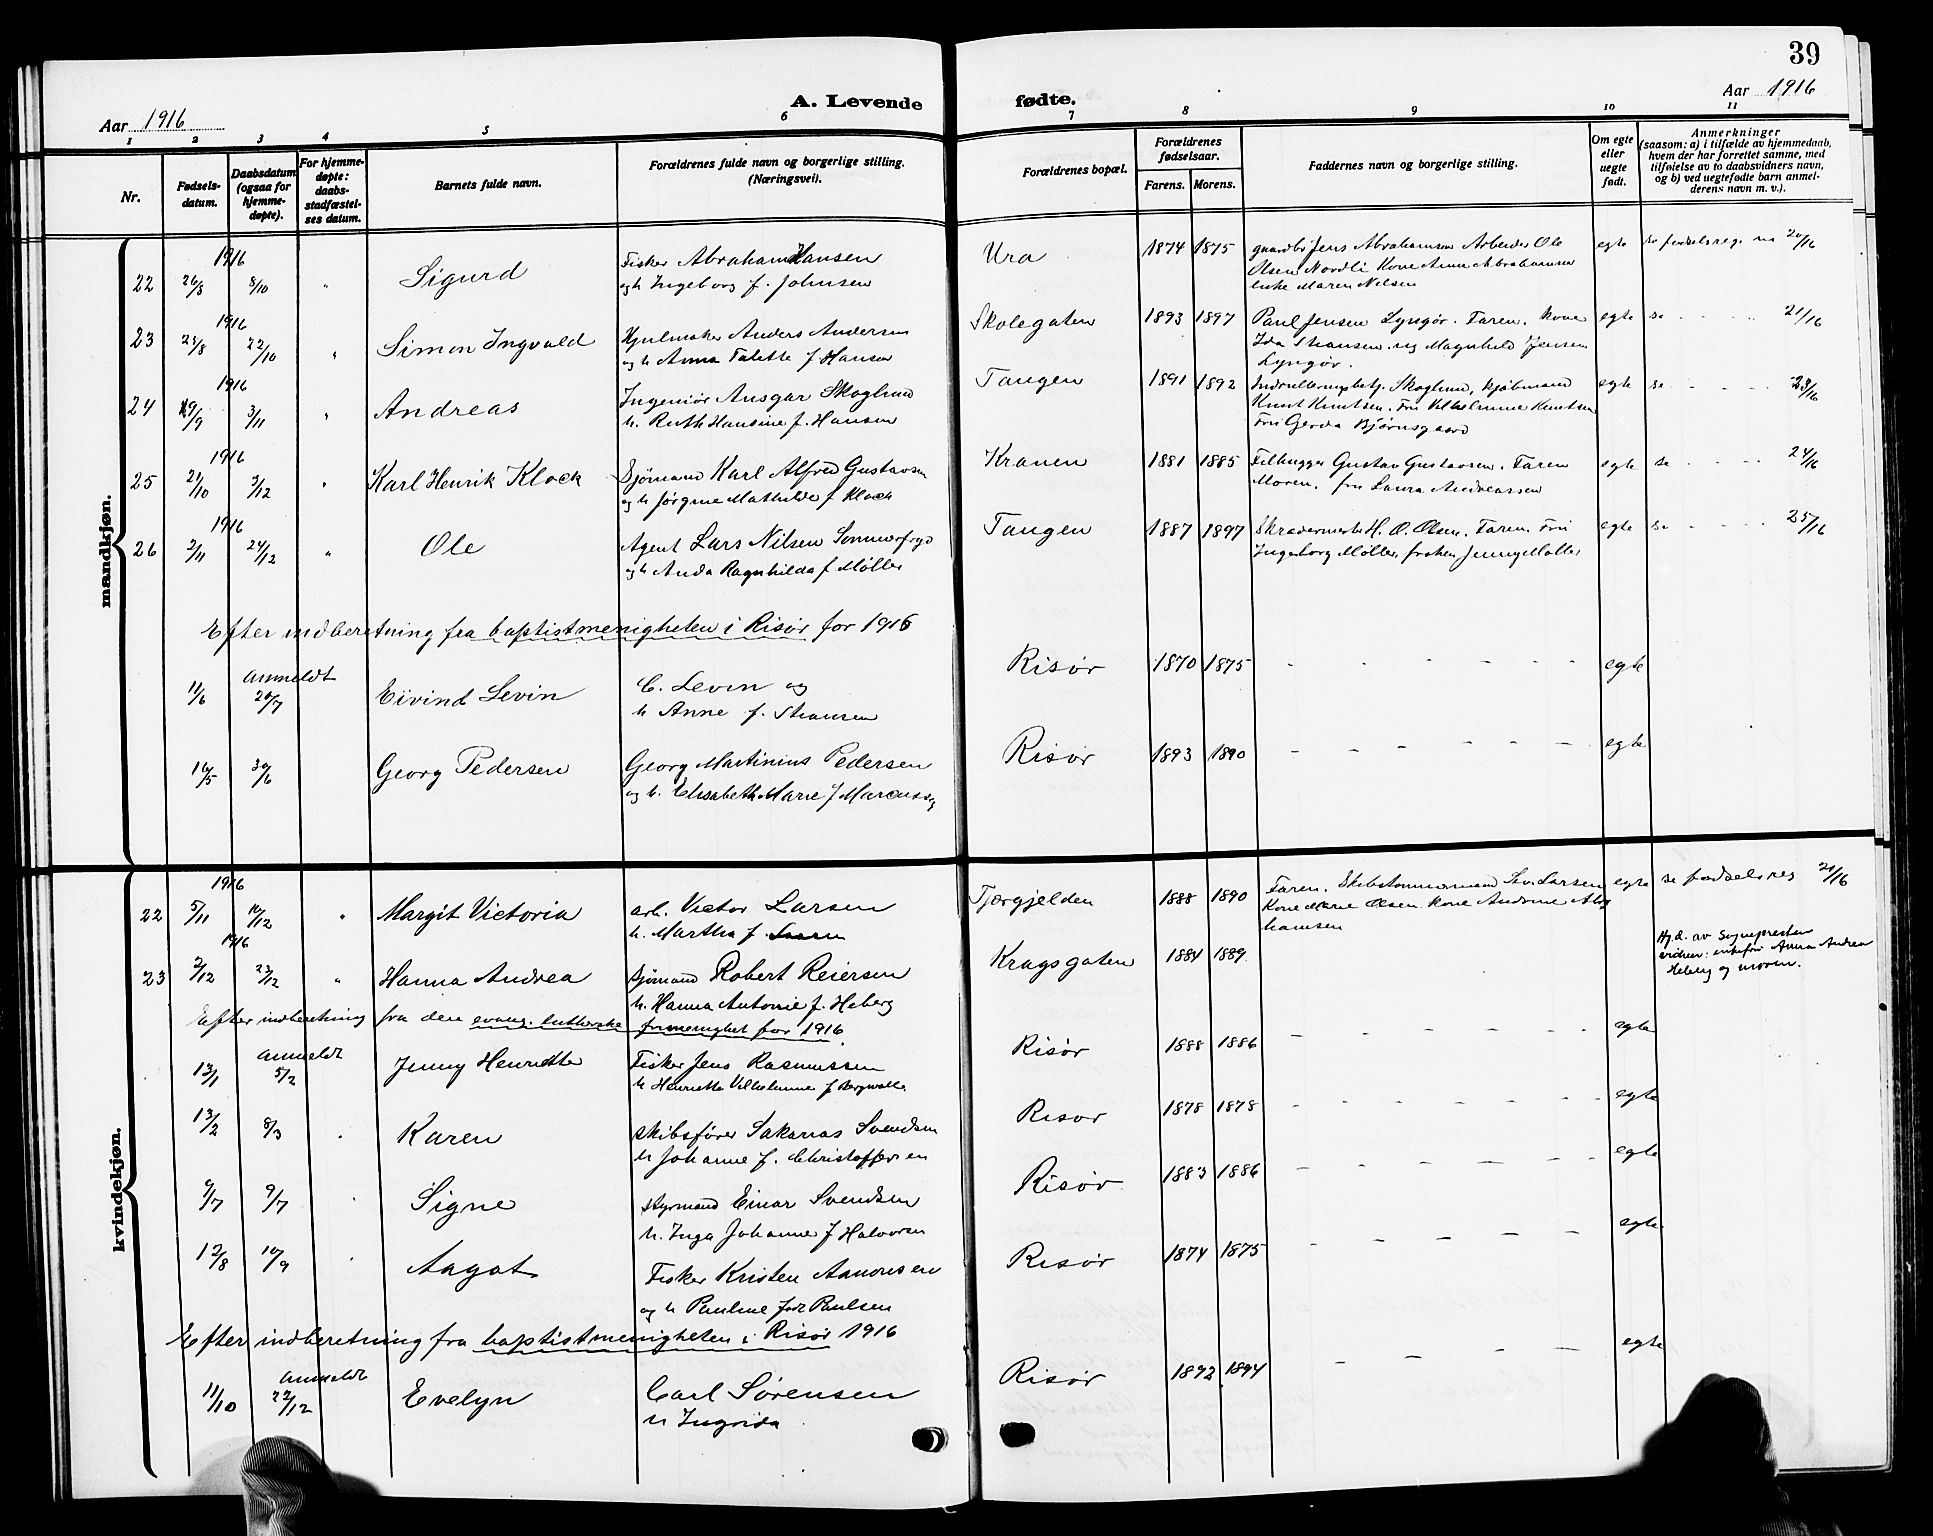 39
Aar 1916
A. Levende fødte.
Aar 1916
1 2 3 4 5 6 7 8 9 10 11
Nr.
Fødsels-
datum.
Daabsdatum
(ogsaa for
hjemme-
døpte).
For hjemme-
døpte:
daabs-
stadfæstel-
ses datum.
Barnets fulde navn.
Forældrenes fulde navn og borgerlige stilling.
(Næringsvei).
Forældrenes bopæl.
Forældrenes
fødselsaar.
Farens. Morens.
Faddernes navn og borgerlige stilling.
Om egte
eller
uegte
født.
Anmerkninger
(saasom: a) i tilfælde av hjemmedaab,
hvem der har forrettet samme, med
tilføielse av to daabsvidners navn,
og b) ved uegtefødte barn anmel-
derens navn m. v.).
mandkjøn.
1916
22 26/8 8/10 " Sigurd Fisker Abraham Hansen Ura 1874 1875 gaardbr Jens Abrahamsen Arbeider Ole egte se fødselsreg. nr 20/16
og h Ingeborg f. Johnsen Olsen Nordli Kone Anne Abrahamsen
enke Maren Nilsen
1916
23 25/8 22/10 " Simon Ingvald Hjulmaker Anders Andersen Skolegaten 1893 1897 Paul Jensen Lyngør. Faren. Kone egte se 21/16
og h Anna Talette f Hansen Ida Hansen og Magnhild Jensen
Lyngør.
1916
24 19/9 3/11 " Andreas Ingeniør Ansgar Skoglund Tangen 1891 1892 Skoglund, kjøbmand egte se 23/16
h. Ruth Hansine f. Hansen Knut Knutsen. Fru Vilhelmine Knutsen
Fru Gerda Bjørnsgaard
1916
25 21/10 3/12 " Karl Henrik Klock Sjømand Karl Alfred Gustavsen Kranen 1881 1885 Filhugger Gustav Gustavsen. Faren egte se 24/16
og h Jørgine Mathilde f Klock Moren. fru Laura Andreassen
1916
26 2/11 24/12 " Ole Agent Lars Nilsen Sommerfryd Tangen 1887 1897 Skrædermester H. O. Olsen. Faren. Fru egte se 25/16
og h Anda Ragnhilda f Møller Ingeborg Møller, frøken Jenny Møller
Efter indberetning fra baptistmenigheten i Risør for 1916
anmeldt
11/6 20/7 Eivind Levin C. Levin og Risør 1870 1875 - - - - - - egte
h Anne f. Hansen
16/5 30/6 Georg Pedersen Georg Martinius Pedersen Risør 1893 1890 - - - - - - egte
og h. Elisabeth Marie f Marcussen
kvindekjøn.
1916
22 5/11 10/12 " Margit Victoria arb. Victor Larsen Tjærgjelden 1888 1890 Faren. Skibstømmermand Sev. Larsen egte se fødselsreg 21/16
h. Martha f. Kone Marie Olsen Kone Andrine Abra
hamsen
1916
23 2/12 23/12 " Hanna Andrea Sjømand Robert Reiersen Kragsgaten 1884 1889 Hj.d. av sognepresten
h. Hanna Antonie f. Heberg vidner: enkefru Anna Andrea
Heberg og moren.
Efter indberetning fra den evang. lutherske frimenighet for 1916.
anmeldt
13/1 5/2 Jenny Henriette Fisker Jens Rasmussen Risør 1888 1886 - - - - - - egte
h Henriette Vilhelmine f
13/2 8/3 " Karen Skibsfører Sakarias Svendsen Risør 1878 1878 - - - - - - egte
h Johanne f. Christoffersen
9/7 9/7 " Signe styrmand Einar Svendsen Risør 1883 1886 - - - - - - egte
h. Inga Johanne f Halvorsen
12/8 10/9 " Aagot Fisker Kristen Aanonsen Risør 1874 1875 - - - - - egte
og h Pauline født Paulsen
Efter indberetning fra baptistmenigheten i Risør 1916
anmeldt
11/10 22/12 Evelyn Carl Sørensen Risør 1892 1894 - - - - egte
h Ingrida